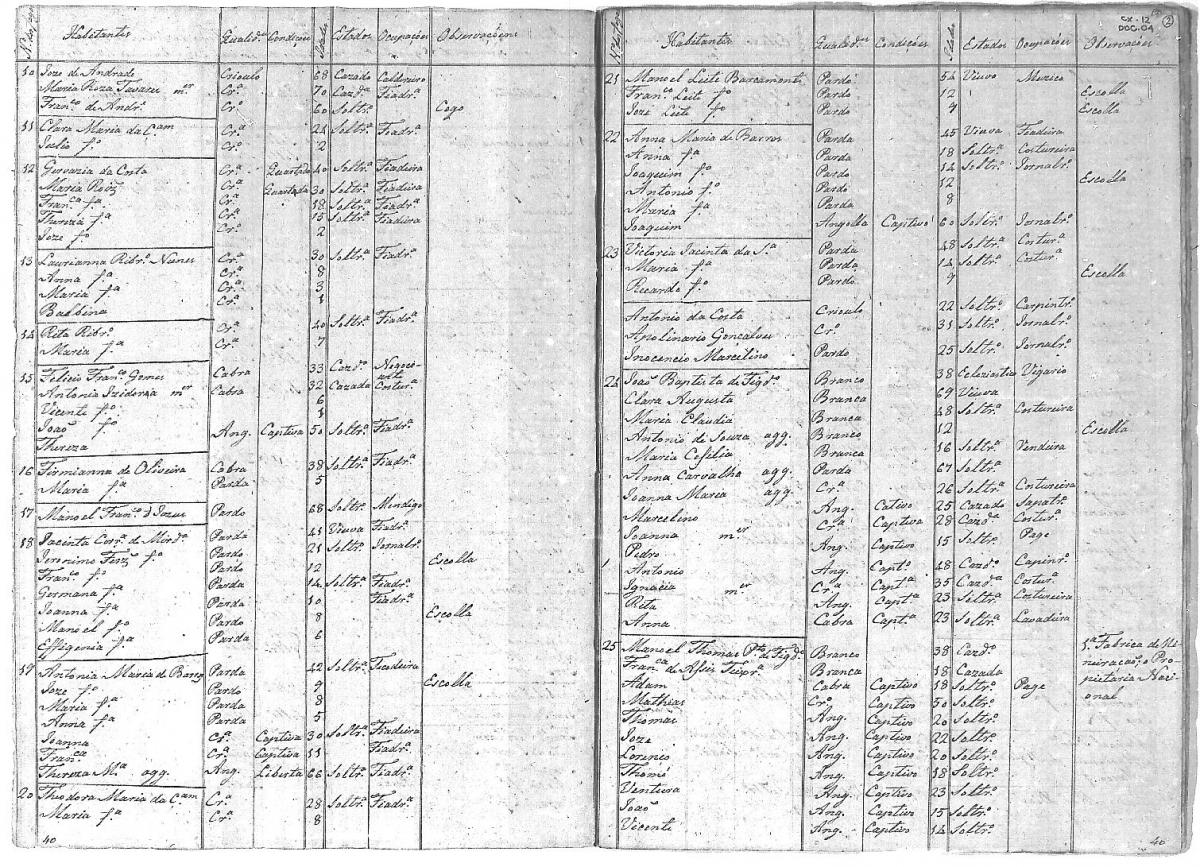 Nº dos fogos Habitantes Qualid.es Condições Idades Estados Ocupações Observações
10 Joze de Andrade Crioulo 68 Cazado Caldeiro
Maria Roza Tavares m.er Cr.ª 70 Cazd.ª Fiadr.ª
Fran.co de Andr.e Cr.º 60 Soltr.º Cego
11 Clara Maria da C.am Cr.ª 21 Soltr.ª Fiadr.ª
Julio f.º Cr.º 2
12 Gervazia da Costa Cr.ª Quartada 40 Soltr.ª Fiadeira
Maria Roiz Cr.ª Quartada 30 Soltr.ª Fiadeira
Fran.ca f.ª Cr.ª 18 Soltr.ª Fiadr.ª
Thereza f.ª Cr.ª 15 Soltr.ª Fiadeira
Joze f.º Cr.º 2
13 Laurianna Ribr.º Nunes Cr.ª 30 Soltr.ª Fiadr.ª
Anna f.ª Cr.ª 8
Maria f.ª Cr.ª 3
Balbina Cr.ª 1
14 Rita Ribr.º Cr.ª 40 Soltr.ª Fiadr.ª
Maria f.ª Cr.ª 7
15 Felicio Fran.co Gomes Cabra 33 Cazd.º Negoceante
Antonia Izidoria m.er Cabra 32 Cazada Costur.ª
Vicente f.º 6
João f.º 1
Thereza Ang. Captiva 50 Soltr.ª Fiadr.ª
16 Firmianna de Oliveira Cabra 38 Soltr.ª Fiadr.ª
Maria f.ª Parda 5
17 Manoel Fran.co d Jozus Pardo 68 Soltr.º Mendigo
18 Jacinta Corr.ª de Mird.ª Parda 41 Viuva Fiadr.ª
Jeronimo Ferz f.º Pardo 21 Soltr.º Jornalr.º
Fran.co f.º Pardo 12 Escolla
Germana f.ª Parda 14 Soltr.ª Fiadr.ª
Joanna f.ª Parda 10 Fiadr.ª
Manoel f.º Pardo 8 Escolla
Effigenia f.ª Parda 6
19 Antonia Maria de Barros Parda 42 Soltr.ª Fiadeira
Joze f.º Pardo 9 Escolla
Maria f.ª Parda 8
Anna f.ª Parda 5
Joanna Cr.ª Captiva 30 Soltr.ª Fiadeira
Fran.ca Cr.ª Captiva 11 Fiadr.ª
Thereza M.ª agg. Ang. Liberta 66 Soltr.ª Fiadr.ª
20 Theodora Maria da C.am Cr.ª 28 Soltr.ª Fiadr.ª
Maria f.ª Cr.ª 8
40
CX-12
DOC.04
2
Nº dos fogos Habitantes Qualid.es Condições Idades Estados Ocupações Observações
21 Manoel Leite Barcamonte Pardo 54 Viuvo Muzico
Fran.co Leite f.º Pardo 12 Escolla
Joze Leite f.º Pardo 9 Escolla
22 Anna Maria de Barros Parda 45 Viuva Fiadeira
Anna f.ª Parda 18 Soltr.ª Costureira
Joaquim f.º Pardo 14 Soltr.º Jornalr.º
Antonio f.º Pardo 12 Escolla
Maria f.ª Parda 8
Joaquim Angolla Captivo 60 Soltr.º Jornalr.º
23 Victoria Jacinta da S.ª Parda 48 Soltr.ª Costur.ª
Maria f.ª Parda 14 Soltr.ª Costur.ª
Ricardo f.º Pardo 9 Escolla
Antonio da Costa Crioulo 22 Soltr.º Carpintr.º
Apolinario Goncalves Cr.º 31 Soltr.º Jornalr.º
Inocencio Marcelino Pardo 25 Soltr.º Jornalr.º
24 João Baptista de Figd.º Branco 38 Eclezeastico Vigario
Clara Augusta Branca 69 Viuva
Maria Claudia Branca 48 Soltr.ª Costureira
Antonio de Souza agg. Branco 12 Escolla
Maria Cesilia Branca 16 Soltr.ª Vendeira
Anna Carvalha agg. Parda 67 Soltr.ª
Joanna Maria agg. Cr.ª 26 Soltr.ª Costureira
Marcelino Ang. Cativo 25 Cazado Sapatr.º
Joanna m.er Cr.ª Captiva 28 Cazd.ª Costur.ª
Pedro Ang. Captivo 15 Soltr.º Page
Antonio Ang. Capt.º 48 Cazd.º Capinr.º
Ignacia m.er Cr.ª Capt.ª 35 Cazd.ª Costur.ª
Rita Ang. Capt.ª 23 Soltr.ª Costureira
Anna Cabra Capt.ª 23 Soltr.ª Lavadeira
25 Manoel Thomas Pto de Figd.º Branco 38 Cazd.º 1.ª Fabrica de Mineiração, e Propietaria Nacional
Fran.ca de Assis Branca 18 Cazada
Adam Cabra Captivo 18 Soltr.º Page
Mathias Cr.º Captivo 50 Soltr.º
Thomas Ang. Captivo 20 Soltr.º
Joze Ang. Captivo 22 Soltr.º
Lorenco Ang. Captivo 20 Soltr.º
Thomé Ang. Captivo 18 Soltr.º
Ventura Ang. Captivo 23 Soltr.º
João Ang. Captivo 15 Soltr.º
Vicente Ang. Captivo 14 Soltr.º
40